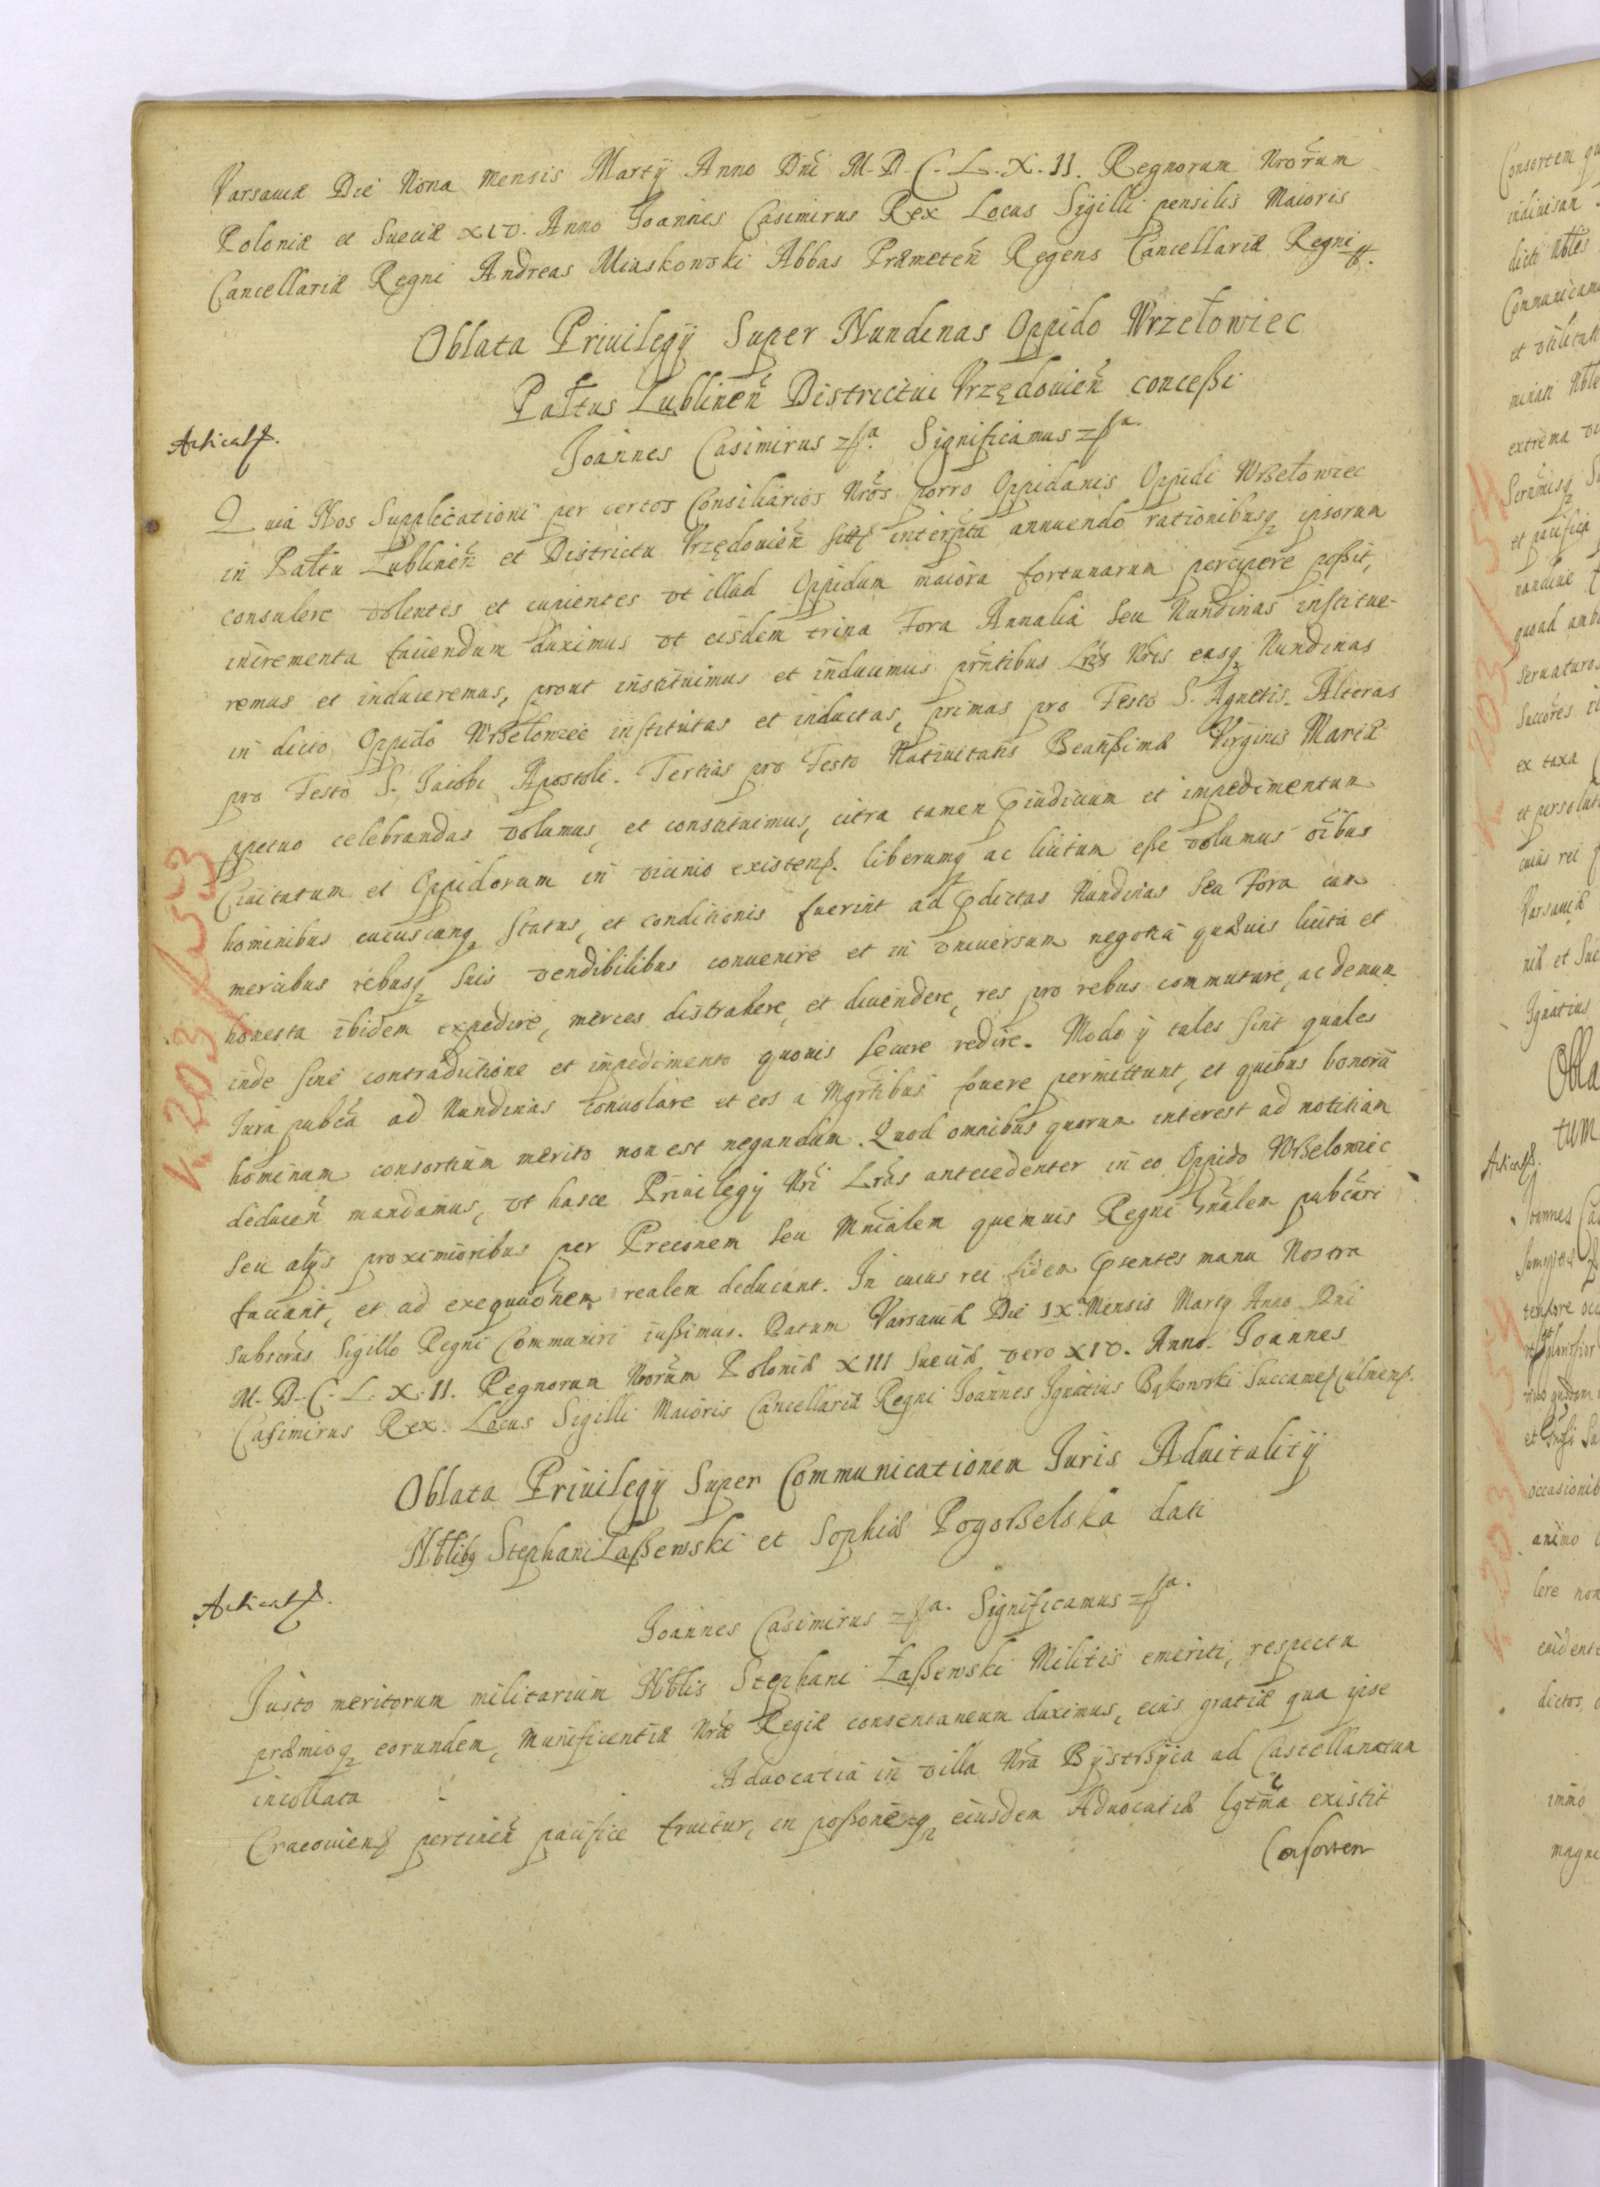 Varsaviæ Die Nona Mensis Martÿ Anno Dnī M-D-C-L-X-II. Regnorum Nrorum
Poloniæ et Sueciæ XIV. Anno Joannes Casimirus Rex Locus Sigilli pensilis Maioris
Cancellariæ Regni Andreas Miaskowski Abbas Præmeteñ Regens Cancellariæ Regni
Oblata Priuilegÿ Super Nundinas Oppido Wrzełowiec
Paltus Lublineñ Districtui Vrzędouieñ conceßi
Joannes Casimirus Significamus
Quia Nos Supplicationi per certos Consiliarios Nros porro Oppidanis Oppidi Wrßełowiec
in Paltu Lublineñ et Districtu Vrzędouieñ interpta annuendo rationibusq ipsorum
consulere volentes et cupientes vt illud Oppidum maiora fortunarum percipere poßit,
incrementa fauendum duximus vt eisdem trina Fora Annalia Seu Nundinas institue-
remus et induceremus, prout instituimus et inducimus pñtibus Lris Nris easq Nundinas
in dicto Oppido Wrßełowiec institutas et inductas, primas pro Festo S. Agnetis. Alteras
pro Festo S. Jacobi Apostoli. Tertias pro Festo Natiuitatis Beatißimæ Virginis Mariæ
ppetuo celebrandas volumus, et constituimus, citra tamen piudicium et impedimentum
Ciuitatum et Oppidorum in vicinio existens. liberumq ac licitum eße volumus oibus
hominibus cuiuscunq Status, et conditionis fuerint ad pdictas Nundinas Seu Fora cum
mercibus rebusq Suis vendibilibus conuenire et in vniuersum negotia quæuis licita et
honesta ibidem expedire, merces distrahere, et diuendere, res pro rebus commutare, ac demum
inde sine contradictione et impedimento quouis Secure redire. Modo ÿ tales sint quales
Jura pubca ad Nundinas conuolare et eos a Mgrtibus fouere permittunt, et quibus bonorū
hominum consortium merito non est negandum. Quod omnibus quorum interest ad notitiam
deduceñ mandamus, vt hasce Priuilegÿ Nri Lras antecedenter in eo Oppido Wrßelowiec
Seu alÿs proximioribus per Preconem Seu Mnialem quemuis Regni Gnalem pubcari
faciant, et ad exequuōnem realem deducant. In cuius rei fidem psentes manu Nostra
Subscras Sigillo Regni Communiri iußimus. Datum Varsauiæ Die IX Mensis Martÿ Anno Dni
M-D-C-L-X-II. Regnorum Nrorum Poloniæ XIII Sueciæ vero XIV. Anno. Joannes
Casimirus Rex. Locus Sigilli Maioris Cancellariæ Regni Joannes Ignatius Bąkowski Succames Culmens.
Oblata Priuilegÿ Super Communicationem Juris Aduitalitÿ
Nblibq Stephani Łaßewski et Sophiæ Pogorßelska dati
Joannes Casimirus Significamus
Justo meritorum militarium Nblis Stephani Łaßewski Militis emeriti, respectu
præmioq eorundem, Munificentiæ Nræ Regiæ consentaneum duximus, eius gratiæ qua ipse
incollata Aduocatia in villa Nra Bÿstrßÿca ad Castellanatum
Cracouiens pertineñ pacifice fruitur, in poßoneq eiusdem Aduocatiæ lgtma existit
Consortem
K. 203/53